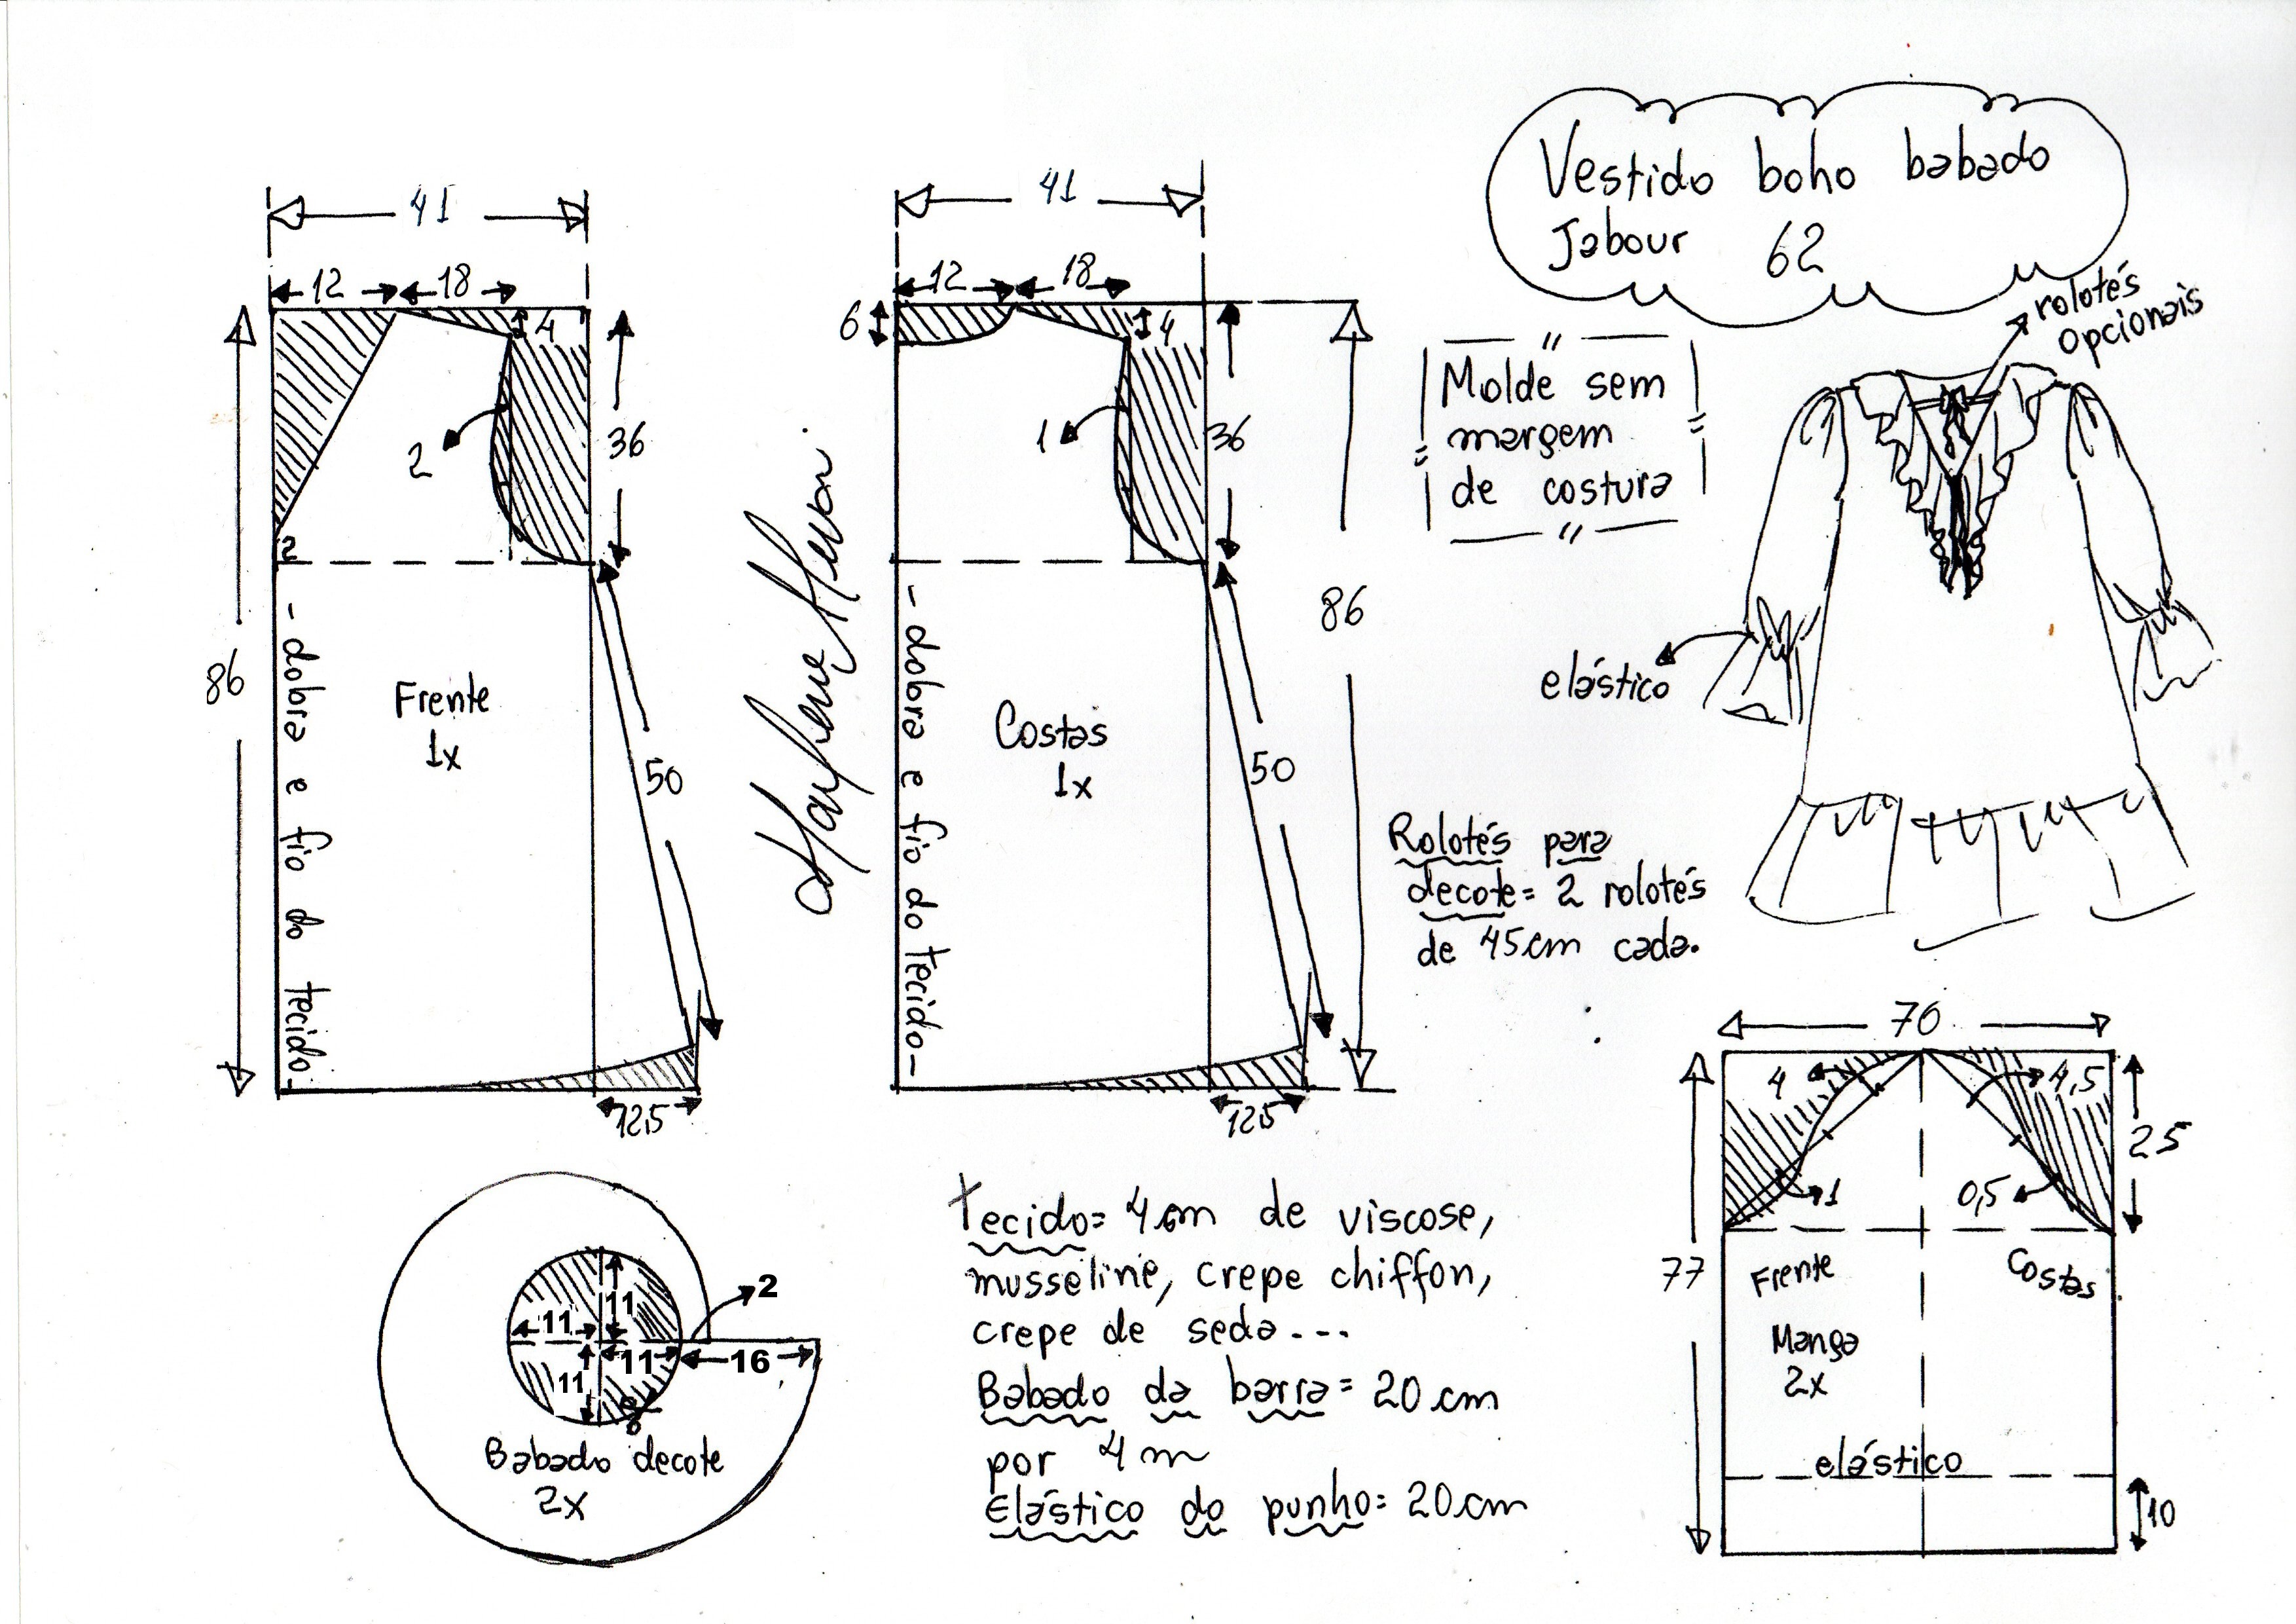 Vestido boho babado
Jabour 62
rolotés
opcionais
Molde sem
margem
de costura
elástico
41
12
18
4
2
36
2
86
- dobra e fio do tecido -
Frente
1x
50
12,5
41
12
18
6
4
1
36
86
- dobra e fio do tecido -
Costas
1x
50
12,5
Rolotés para
decote = 2 rolotés
de 45cm cada.
70
4
4,5
25
1
0,5
77
Frente
Costas
Manga
2x
elástico
10
11
11
11
11
2
16
Babado decote
2x
tecido = 4 m de viscose,
musseline, crepe chiffon,
crepe de seda...
Babado da barra = 20 cm
por 4 m
Elástico do punho = 20 cm